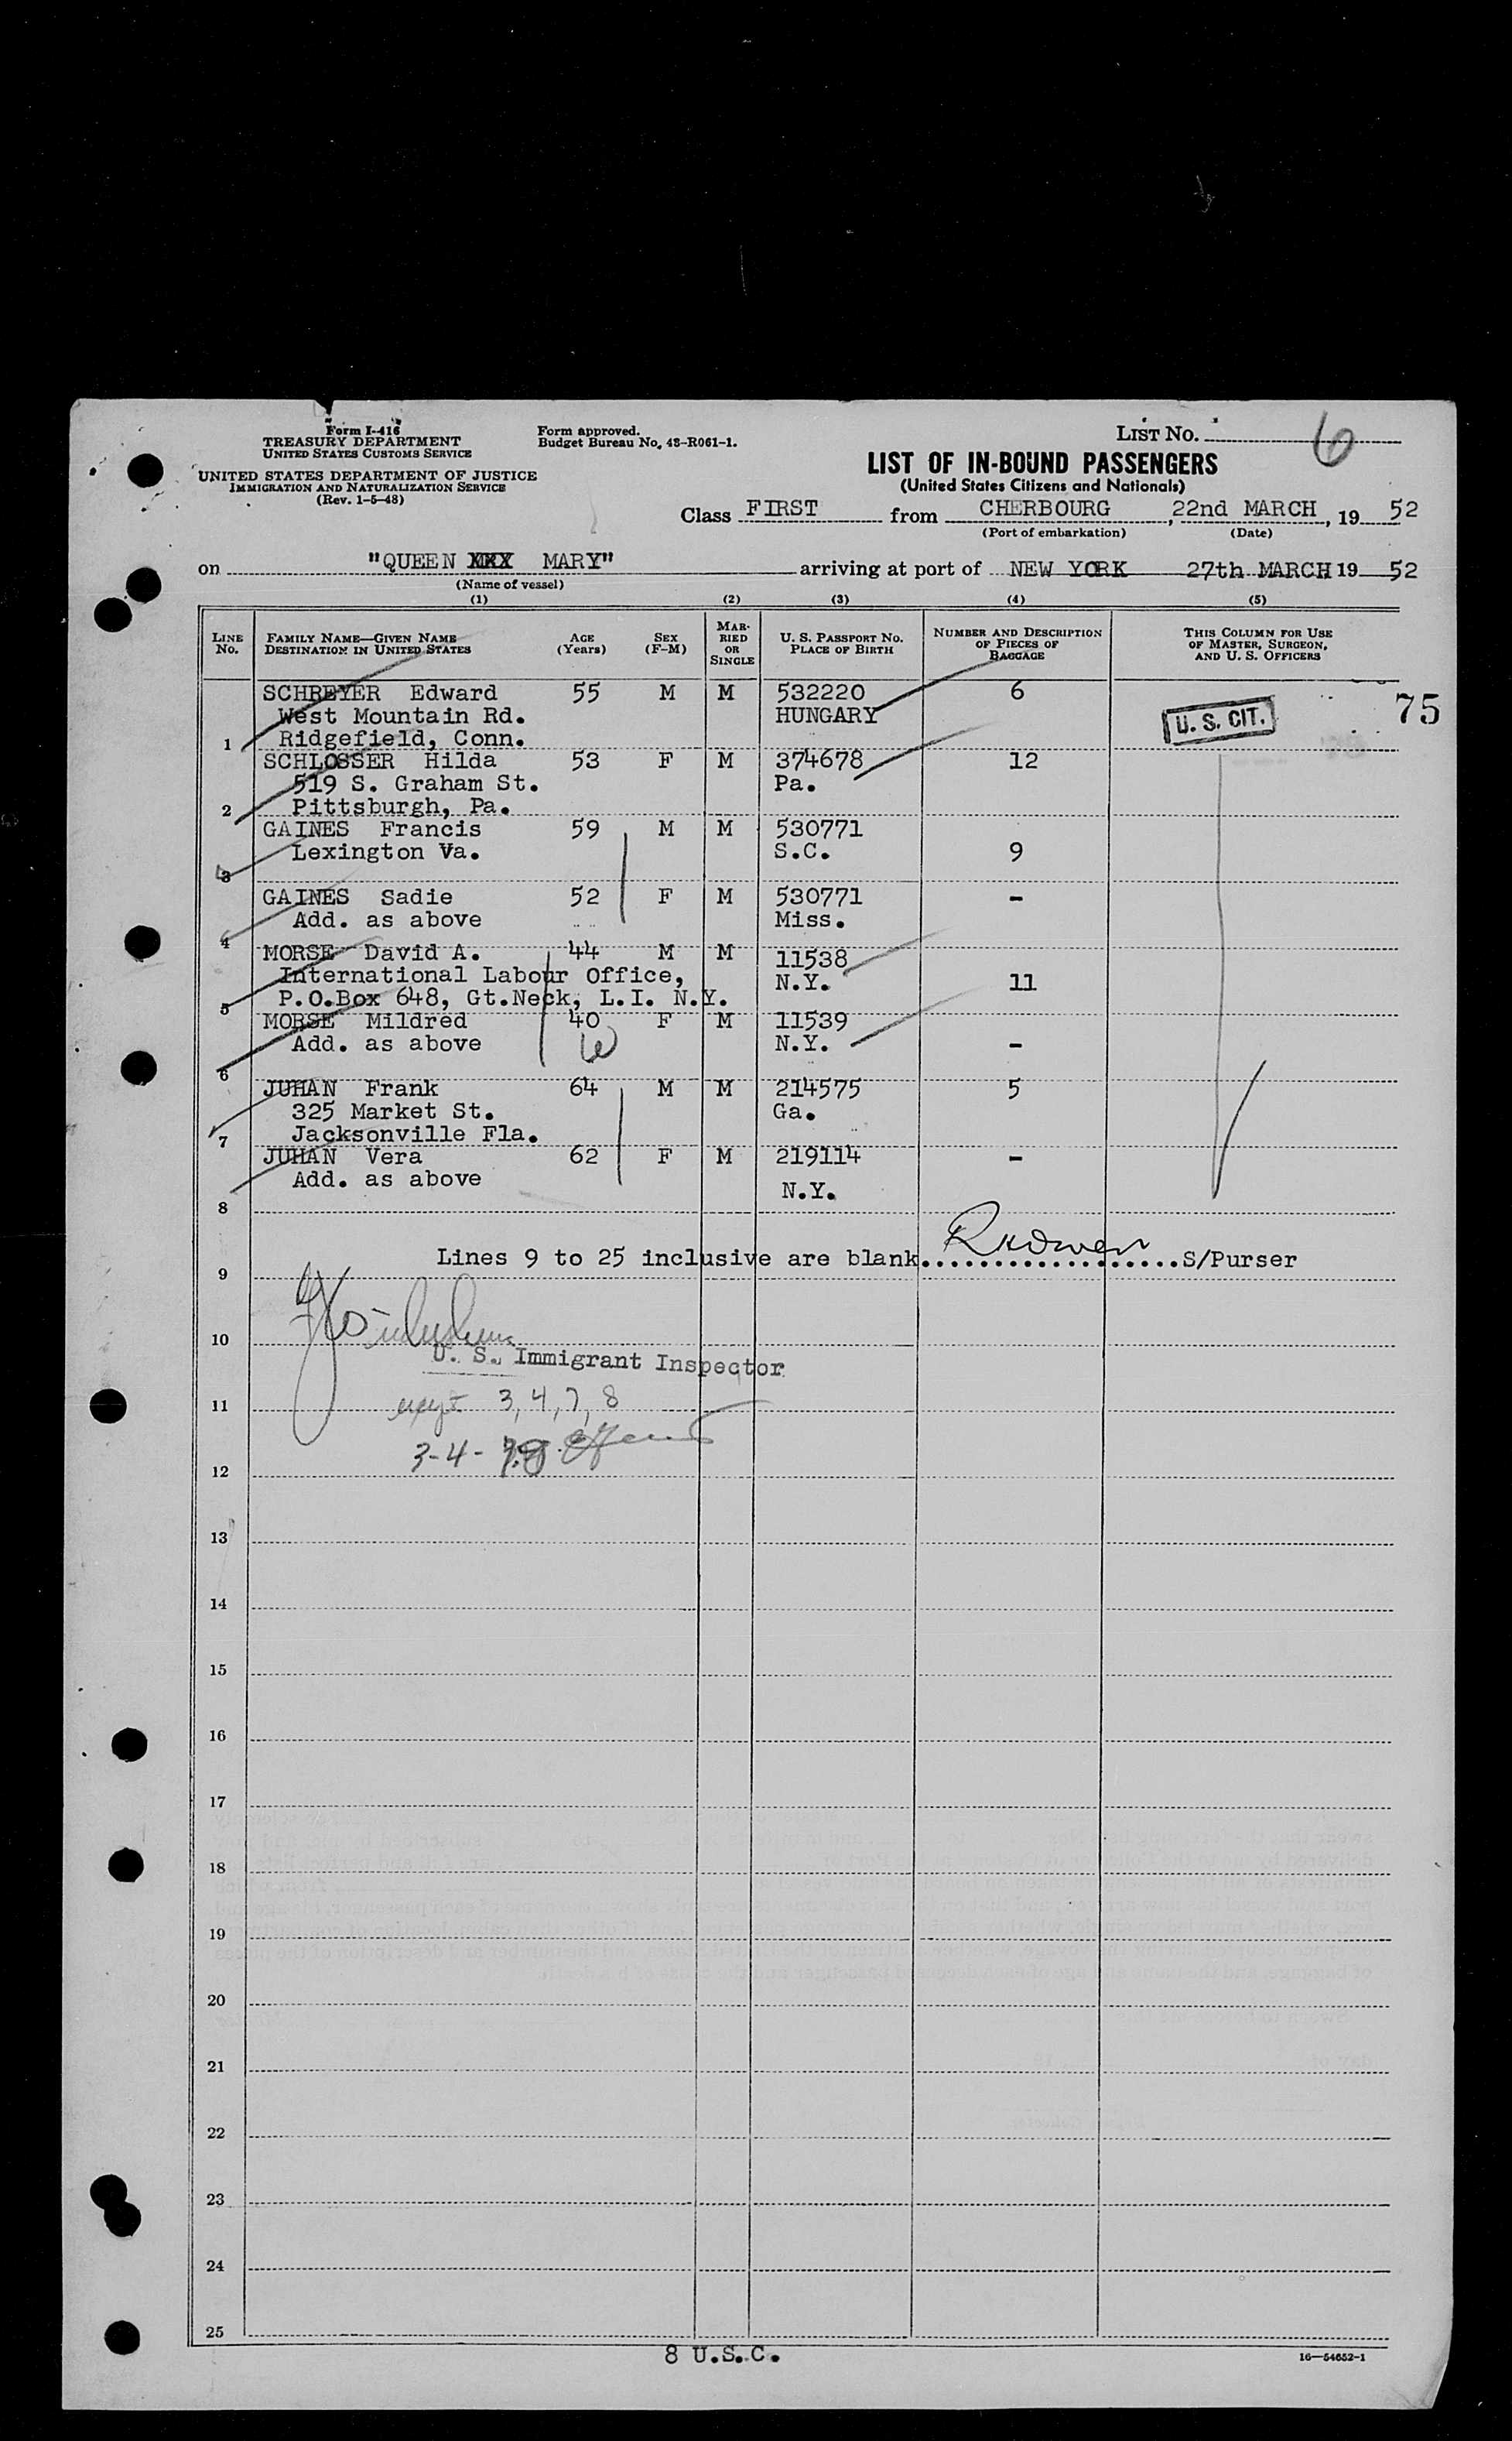 Form I-416
TREASURY DEPARTMENT
UNITED STATES CUSTOMS SERVICE
UNITED STATES DEPARTMENT OF JUSTICE
IMMIGRATION AND NATURALIZATION SERVICE
(Rev. 1-5-48)
Form approved.
Budget Bureau No. 43-R061-1.
LIST NO. 6
LIST OF IN-BOUND PASSENGERS
(United States Citizens and Nationals)
Class FIRST from CHERBOURG, 22nd MARCH, 19 52
(Port of embarkation) (Date)
on "QUEEN XXX MARY" arriving at port of NEW YORK 27th MARCH 19 52
(Name of vessel)
(1) (2) (3) (4) (5)
LINE NO. FAMILY NAME—GIVEN NAME DESTINATION IN UNITED STATES AGE (Years) SEX (F-M) MARRIED OR SINGLE U. S. PASSPORT NO. PLACE OF BIRTH NUMBER AND DESCRIPTION OF PIECES OF BAGGAGE THIS COLUMN FOR USE OF MASTER, SURGEON, AND U. S. OFFICERS
SCHREYER Edward 55 M M 532220 6
West Mountain Rd. HUNGARY U. S. CIT. 75
1 Ridgefield, Conn.
SCHLOSSER Hilda 53 F M 374678 12
519 S. Graham St. Pa.
2 Pittsburgh, Pa.
GAINES Francis 59 M M 530771
Lexington Va. S.C. 9
3
GAINES Sadie 52 F M 530771 -
Add. as above Miss.
4
MORSE David A. 44 M M 11538
International Labour Office, N.Y. 11
5 P.O.Box 648, Gt.Neck, L.I. N.Y.
MORSE Mildred 40 F M 11539
Add. as above N.Y. -
6
JUHAN Frank 64 M M 214575 5
325 Market St. Ga.
7 Jacksonville Fla.
JUHAN Vera 62 F M 219114 -
Add. as above N.Y.
8
Lines 9 to 25 inclusive are blank..................S/Purser
9
10
U. S. Immigrant Inspector
11 except 3, 4, 7, 8
3-4-7.8
12
13
14
15
16
17
18
19
20
21
22
23
24
25
8 U.S.C.
16—54652-1